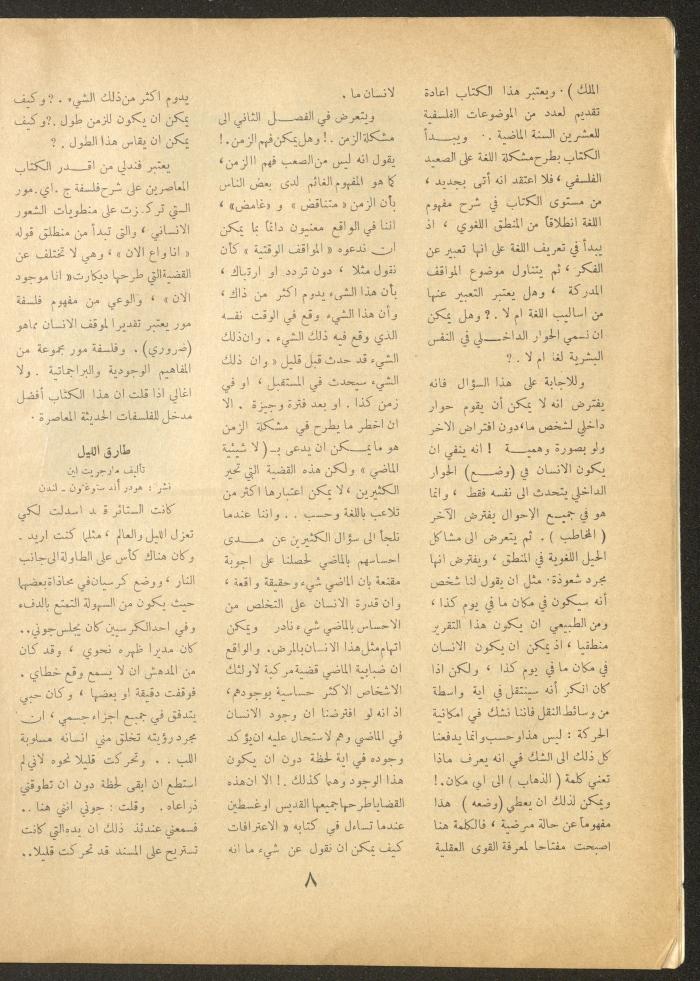 الملك ) . ويعتبر هذا الكتاب اعادة
تقديم لعدد من الموضوعات الفلسفية
للعشرين السنة الماضية .. ويبدأ
الكتاب بطرح مشكلة اللغة على الصعيد
الفلسفي ، فلا اعتقد انه أتى بجديد ،
من مستوى الكتاب في شرح مفهوم
اللغة انطلاقاً من المنطق اللغوي ، اذ
يبدأ في تعريف اللغة على انها تعبير عن
الفكر ، ثم يتناول موضوع المواقف
المدركة ، وهل يعتبر التعبير عنها
من اساليب اللغة ام لا .? وهل يمكن
ان نسمي الحوار الداخلي في النفس
البشرية لغة ام لا .?
وللاجابة على هذا السؤال فانه
يفترض انه لا يمكن أن يقوم حوار
داخلي لشخص ما ، دون افتراض الاخر
ولو بصورة وهمية ! انه ينفي ان
يكون الانسان في (وضع) الحوار
الداخلي يتحدث الى نفسه فقط ، وانما
هو في جميع الاحوال يفترض الآخر
( المخاطب ) . ثم يتعرض الى مشاكل
الحيل اللغوية في المنطق ، ويفترض انها
مجرد شعوذة . مثل ان يقول لنا شخص
أنه سيكون في مكان ما في يوم كذا ،
ومن الطبيعي ان يكون هذا التقرير
منطقيا ، اذ يمكن ان يكون الانسان
في مكان ما في يوم كذا ، ولكن اذا
كان انكر أنه سينتقل في اية واسطة
من وسائط النقل فاننا نشك في امكانية
الحركة : ليس هذا وحسب وانما يدفعنا
كل ذلك الى الشك في انه يعرف ماذا
تعني كلمة ( الذهاب ) الى اي مكان .!
ويمكن لذلك ان يعطي (وضعه ) هذا
مفهوماً عن حالة مرضية ، فالكلمة هنا
اصبحت مفتاحا لمعرفة القوى العقلية
لانسان ما .
ويتعرض في الفصل الثاني الى
مشكلة الزمن .! وهل يمكن فهم الزمن .!
يقول انه ليس من الصعب فهم الزمن ،
كما هو المفهوم الغائم لدى بعض الناس
بأن الزمن « متناقض » و « غامض » ،
اننا في الواقع معنيون دائماً بما يمكن
ان ندعوه « المواقف الوقتية » كأن
نقول مثلا ، دون تردد او ارتباك ،
بأن هذا الشيء يدوم اكثر من ذاك ،
وأن هذا الشيء وقع في الوقت نفسه
الذي وقع فيه ذلك الشيء . وان ذلك
الشيء قد حدث قبل قليل « وان ذلك
الشيء سيحدث في المستقبل ، او في
زمن كذا . او بعد فترة وجيزة . الا
ان اخطر ما يطرح في مشكلة الزمن
هو ما يمكن ان يدعى بـ ( لا شيئية
الماضي » ولكن هذه القضية التي تحير
الكثيرين ، لا يمكن اعتبارها اكثر من
تلاعب باللغة وحسب .. واننا عندما
نلجأ الى سؤال الكثيرين عن مدى
احساسهم بالماضي لحصلنا على اجوبة
مقنعة بان الماضي شيء وحقيقة واقعة ،
وان قدرة الانسان على التخلص من
الاحساس بالماضي شيء نادر ويمكن
اتهام مثل هذا الانسان بالمرض . والواقع
ان ضبابية الماضي قضية مركبة لاولئك
الاشخاص الاكثر حساسية بوجودهم ،
اذ انه لو افترضنا ان وجود الانسان
في الماضي وهم لاستحال عليه ان يؤكد
وجوده في اية لحظة دون ان يكون
هذا الوجود وهما كذلك .! الا ان هذه
القضايا طرحها جميعها القديس اوغسطين
عندما تساءل في كتابه « الاعترافات
كيف يمكن ان نقول عن شيء ما انه
يدوم اكثر من ذلك الشيء . ? وكيف
يمكن ان يكون للزمن طول .? وكيف
يمكن ان يقاس هذا الطول . ?
يعتبر فندلي من اقدر الكتاب
المعاصرين على شرح فلسفة ج . اي . مور
التي تركزت على منطويات الشعور
الانساني ، والتي تبدأ من منطلق قوله
« انا واع الان » ، وهي لا تختلف عن
القضية التي طرحها ديكارت « انا موجود
الان » ، والوعي من مفهوم فلسفة
مور يعتبر تقديرا لموقف الانسان مما هو
(ضروري) . وفلسفة مور مجموعة من
المفاهيم الوجودية والبراجماتية . ولا
اغالي اذا قلت ان هذا الكتاب أفضل
مدخل للفلسفات الحديثة المعاصرة .
طارق الليل
تأليف مارجريت لين
نشر : هودر أند ستوغتون ـ لندن
كانت الستائر قد اسدلت لكي
تعزل الليل والعالم ، مثلما كنت اريد .
وكان هناك كأس على الطاولة الى جانب
النار ، ووضع كرسيان في محاذاة بعضها
حيث يكون من السهولة التمتع بالدفء
وفي احد الكرسيين كان يجلس جوني ..
كان مديرا ظهره نحوي ، وقد كان
من المدهش ان لا يسمع وقع خطاي .
فوقفت دقيقة او بعضها ، وكان حبي
يتدفق في جميع اجزاء جسمي ، ان
مجرد رؤيته تخلق مني انسانه مسلوبة
اللب .. وتحركت قليلا نحوه لاني لم
استطع ان ابقى لحظة دون ان تطوقني
ذراعاه . وقلت : جوني انني هنا ..
فسمعني عندئذ ذلك ان يده التي كانت
تستريح على المسند قد تحركت قليلا ..
٨